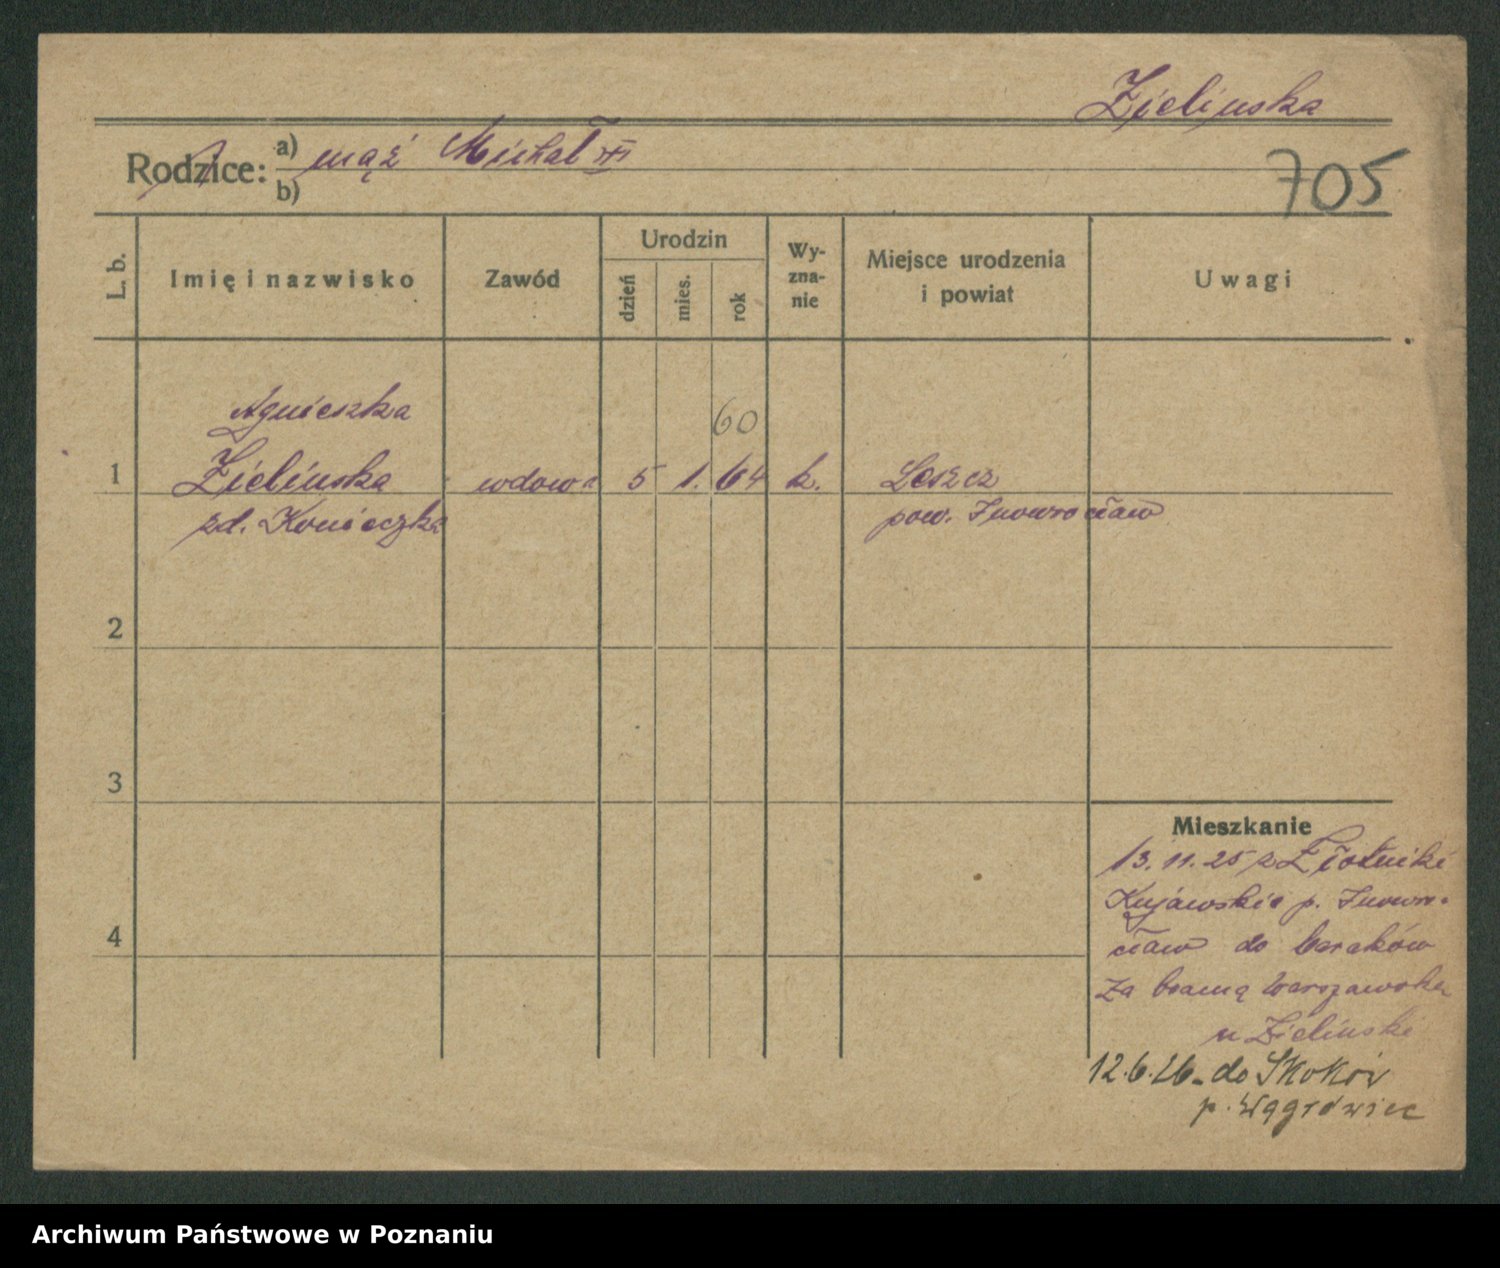 Zielinska
Rodzice: a) mąż Michał
b)
705
L. b.
Imię i nazwisko
Zawód
Urodzin
dzień
mies.
rok
Wy-
zna-
nie
Miejsce urodzenia
i powiat
Uwagi
Agnieszka
60
1 Zielinska wdowa 5 1. 64 k. Leszcz
zd. Konieczka pow. Inowrocław
2
3
Mieszkanie
13.11.25 z Złotniki
Kujawskie p. Inowro-
4
cław do baraków
za bramą Warszawską
u Zielinski
12.6.26. do Skoków
p. Wągrówiec
Archiwum Państwowe w Poznaniu